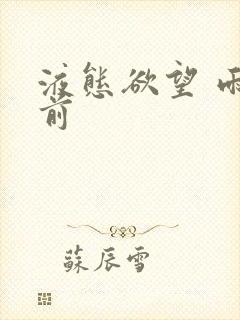 液態欲望 雨
前
蘇辰雪